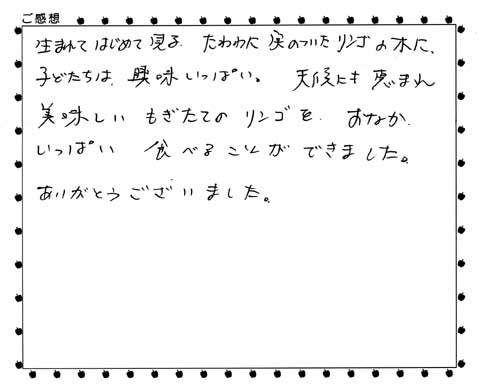 ご感想
生まれてはじめて見る たわわに実のついたリンゴの木に、
子どたちは、興味いっぱい。 天候にも恵まれ
美味しい もぎたての リンゴを おなか
いっぱい 食べることができました。
ありがとうございました。